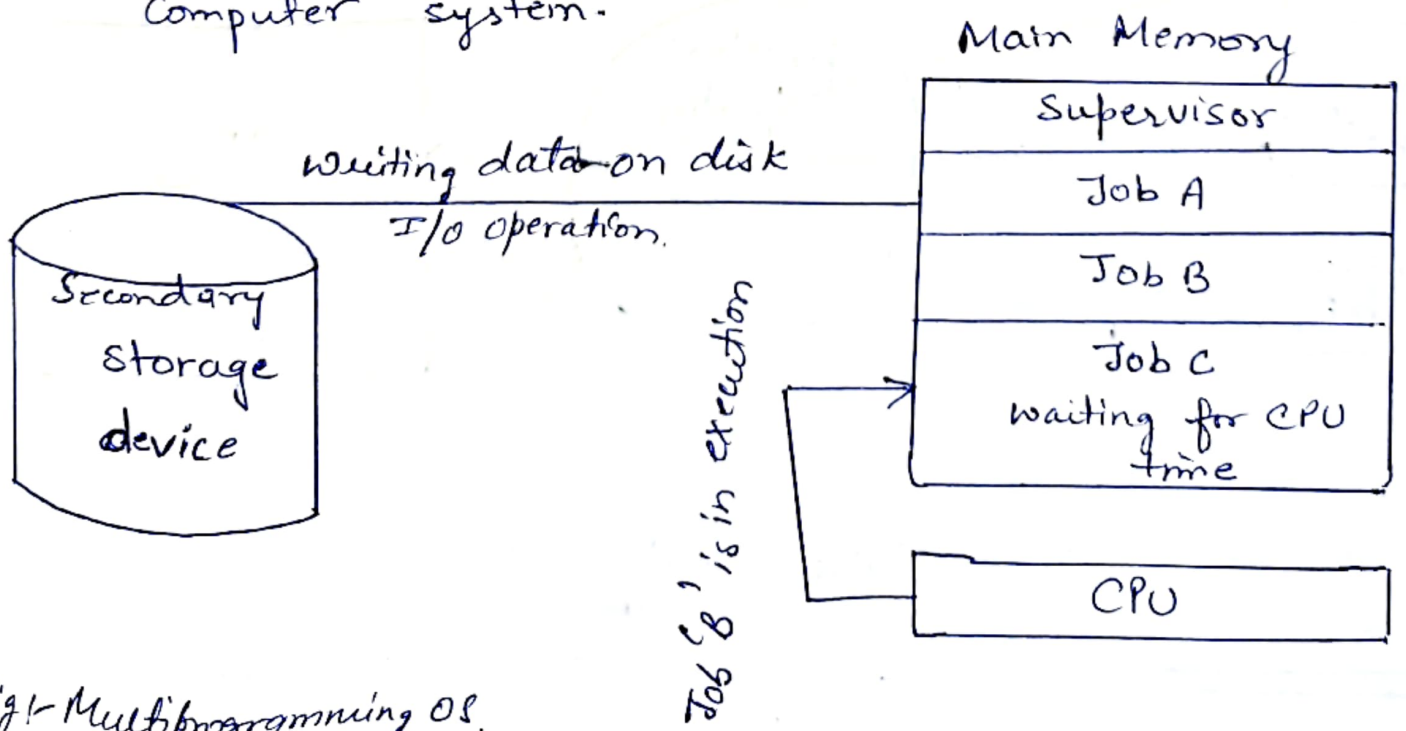 Computer system.
Main Memory
Supervisor
Job A
Job B
Job C
waiting for CPU
time
Writing data on disk
I/O operation.
Secondary
storage
device
Job 'B' is in execution
CPU
ig:- Multiprogramming OS.